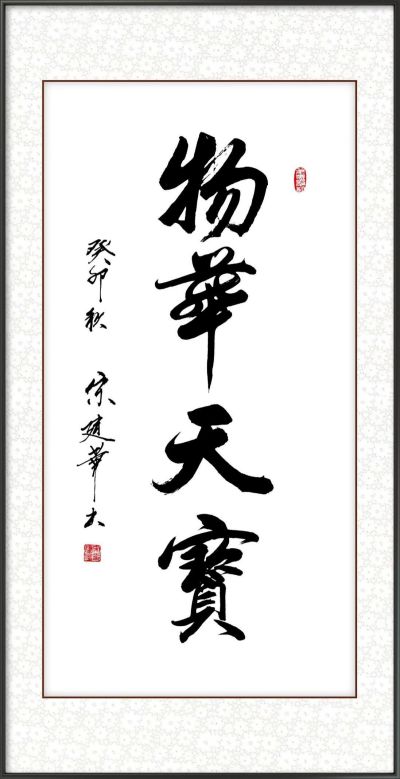 物華天寶
癸卯秋 宗建華书